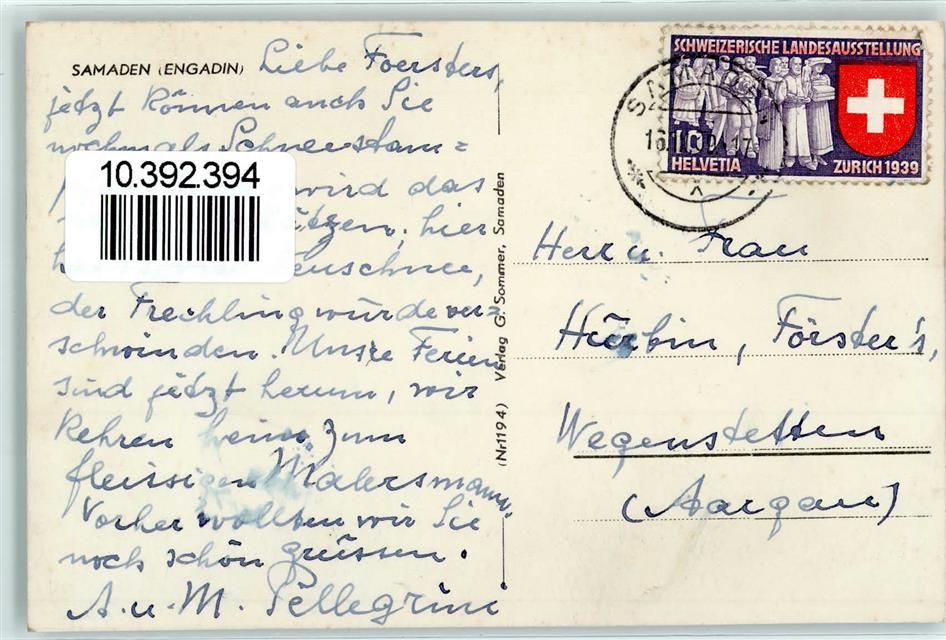 SAMADEN (ENGADIN) Liebe Foersters,
jetzt können auch Sie
nochmals Schneestam=
wird das
hier
euschnee,
der Frechling würde ver=
schwinden. Unsre Ferien
sind jetzt herum, wir
kehren heim zum
fleissigen Malersmann.
Vorher wollten wir Sie
noch schön grüssen.
A. u. M. Pellegrini
10.392.394
(Nr1194) Verlag G. Sommer, Samaden
SCHWEIZERISCHE LANDESAUSSTELLUNG
10
HELVETIA
ZURICH 1939
SAMADEN
Herr u. Frau
Hürbin, Förster's,
Wegenstetten
(Aargau)